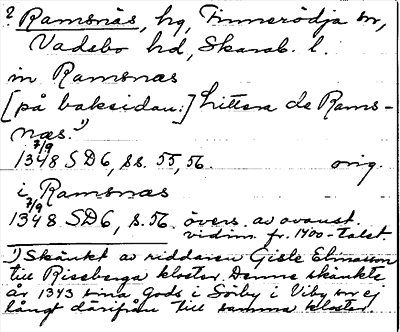 ? Ramsnäs, hg, Finnerödja sn,
Vadsbo hd, Skarab. l.
in Ramsnæs
[på baksidan:] littera de Rams-
næs.¹⁾
7/9
1348 SD6, ss. 55, 56. orig.
i Ramsnæs
7/9
1348 SD6, s. 56. övers. av ovanst.
vidim. fr. 1400-talet.
¹⁾ Skänkt av riddaren Gisle Elinasson
till Riseberga kloster. Denne skänkte
år 1343 sina gods i Sörby i Viby sn ej
långt därifrån till samma kloster.